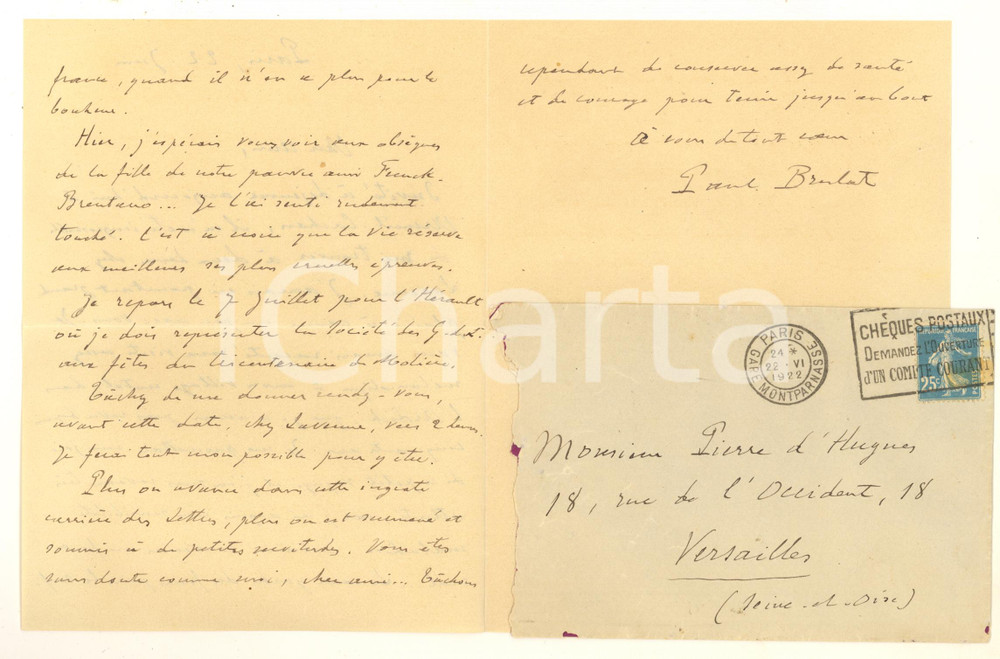 france, quand il n'en a plus pour le
bonheur.
Hier, j'espérais vous voir aux obsèques
de la fille de notre pauvre ami Funck-
Brentano... Je l'ai senti rudement
touché. C'est à croire que la vie réserve
aux meilleurs ses plus cruelles épreuves.
Je repars le 7 Juillet pour l'Hérault
où je dois représenter la Société des G. de L.
aux fêtes du tricentenaire de Molière.
Tâchez de me donner rendez-vous,
avant cette date, chez Lavenue, vers 2 heures.
Je ferai tout mon possible pour y être.
Plus on avance dans cette ingrate
carrière des Lettres, plus on est surmené et
soumis à de petites servitudes. Vous êtes
sans doute comme moi, cher ami... Tâchons
cependant de conserver assez de santé
et de courage pour tenir jusqu'au bout
À vous de tout cœur
Paul Brulat
iCharta
PARIS
GARE MONTPARNASSE
24 *
22 - VI
1922
CHÈQUES POSTAUX
DEMANDEZ L'OUVERTURE
D'UN COMPTE COURANT
25c
Monsieur Pierre d'Hugues
18, rue de l'Occident, 18
Versailles
(Seine-et-Oise)